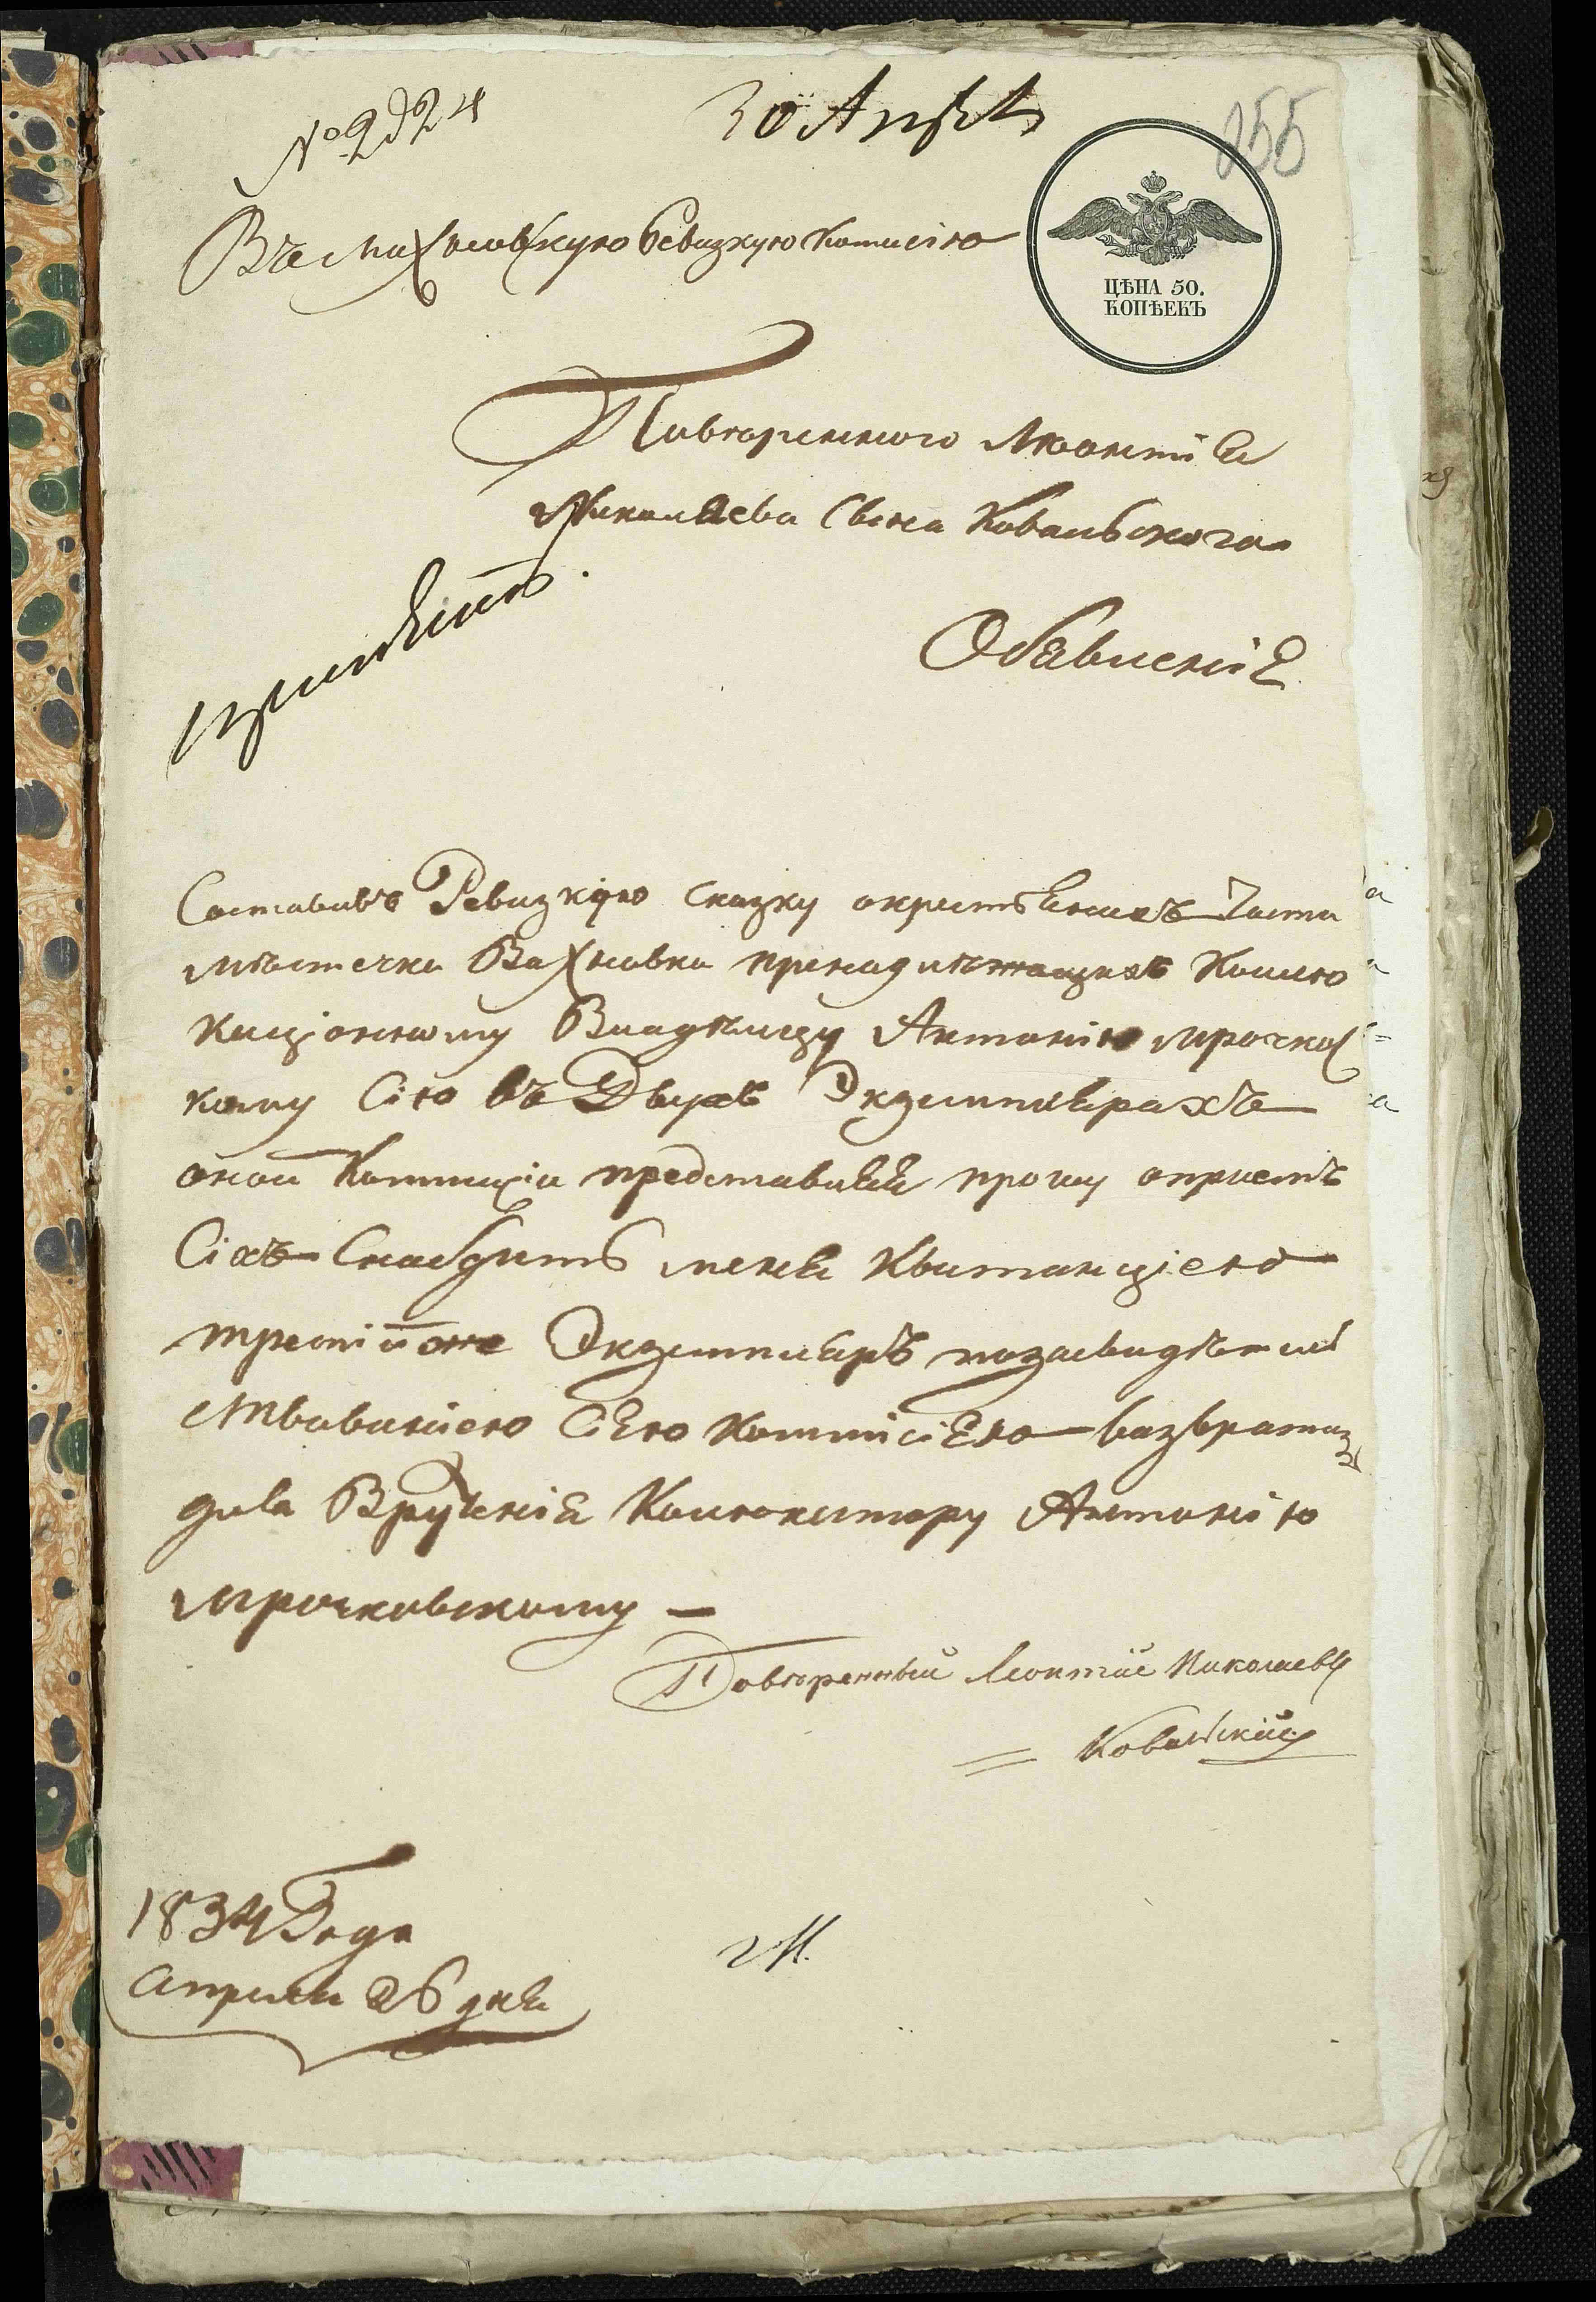 30 Апрѣ
155
Въ Махновскую Ревизкую Комисию
ЦѢНА 50.
КОПѢЕКЪ
Повѣренного Леонтія
Николаева Сына Ковальского
Объявленіе
Приобщить
Составивъ Ревизкую Сказку окрестьянахъ Части
мѣстечка Вахновки принадлѣжащихъ Коллю
каціонному Владѣльцу Антонію Мрочков
кому Сію въ Двухъ Экземплярахъ
оной Коммисіи представляя прошу оприемѣ
Сихъ Снабдить меня Квитанціею
третій же Экземпляръ позасвидѣтель
ствованіею Сею Коммисіею возвратить
для Вручѣнія Коллокатору Антонію
Мрочковскому —
Повѣренный Леонтій Николаевъ
Ковальскій
1834 Года
Апреля 26 дня